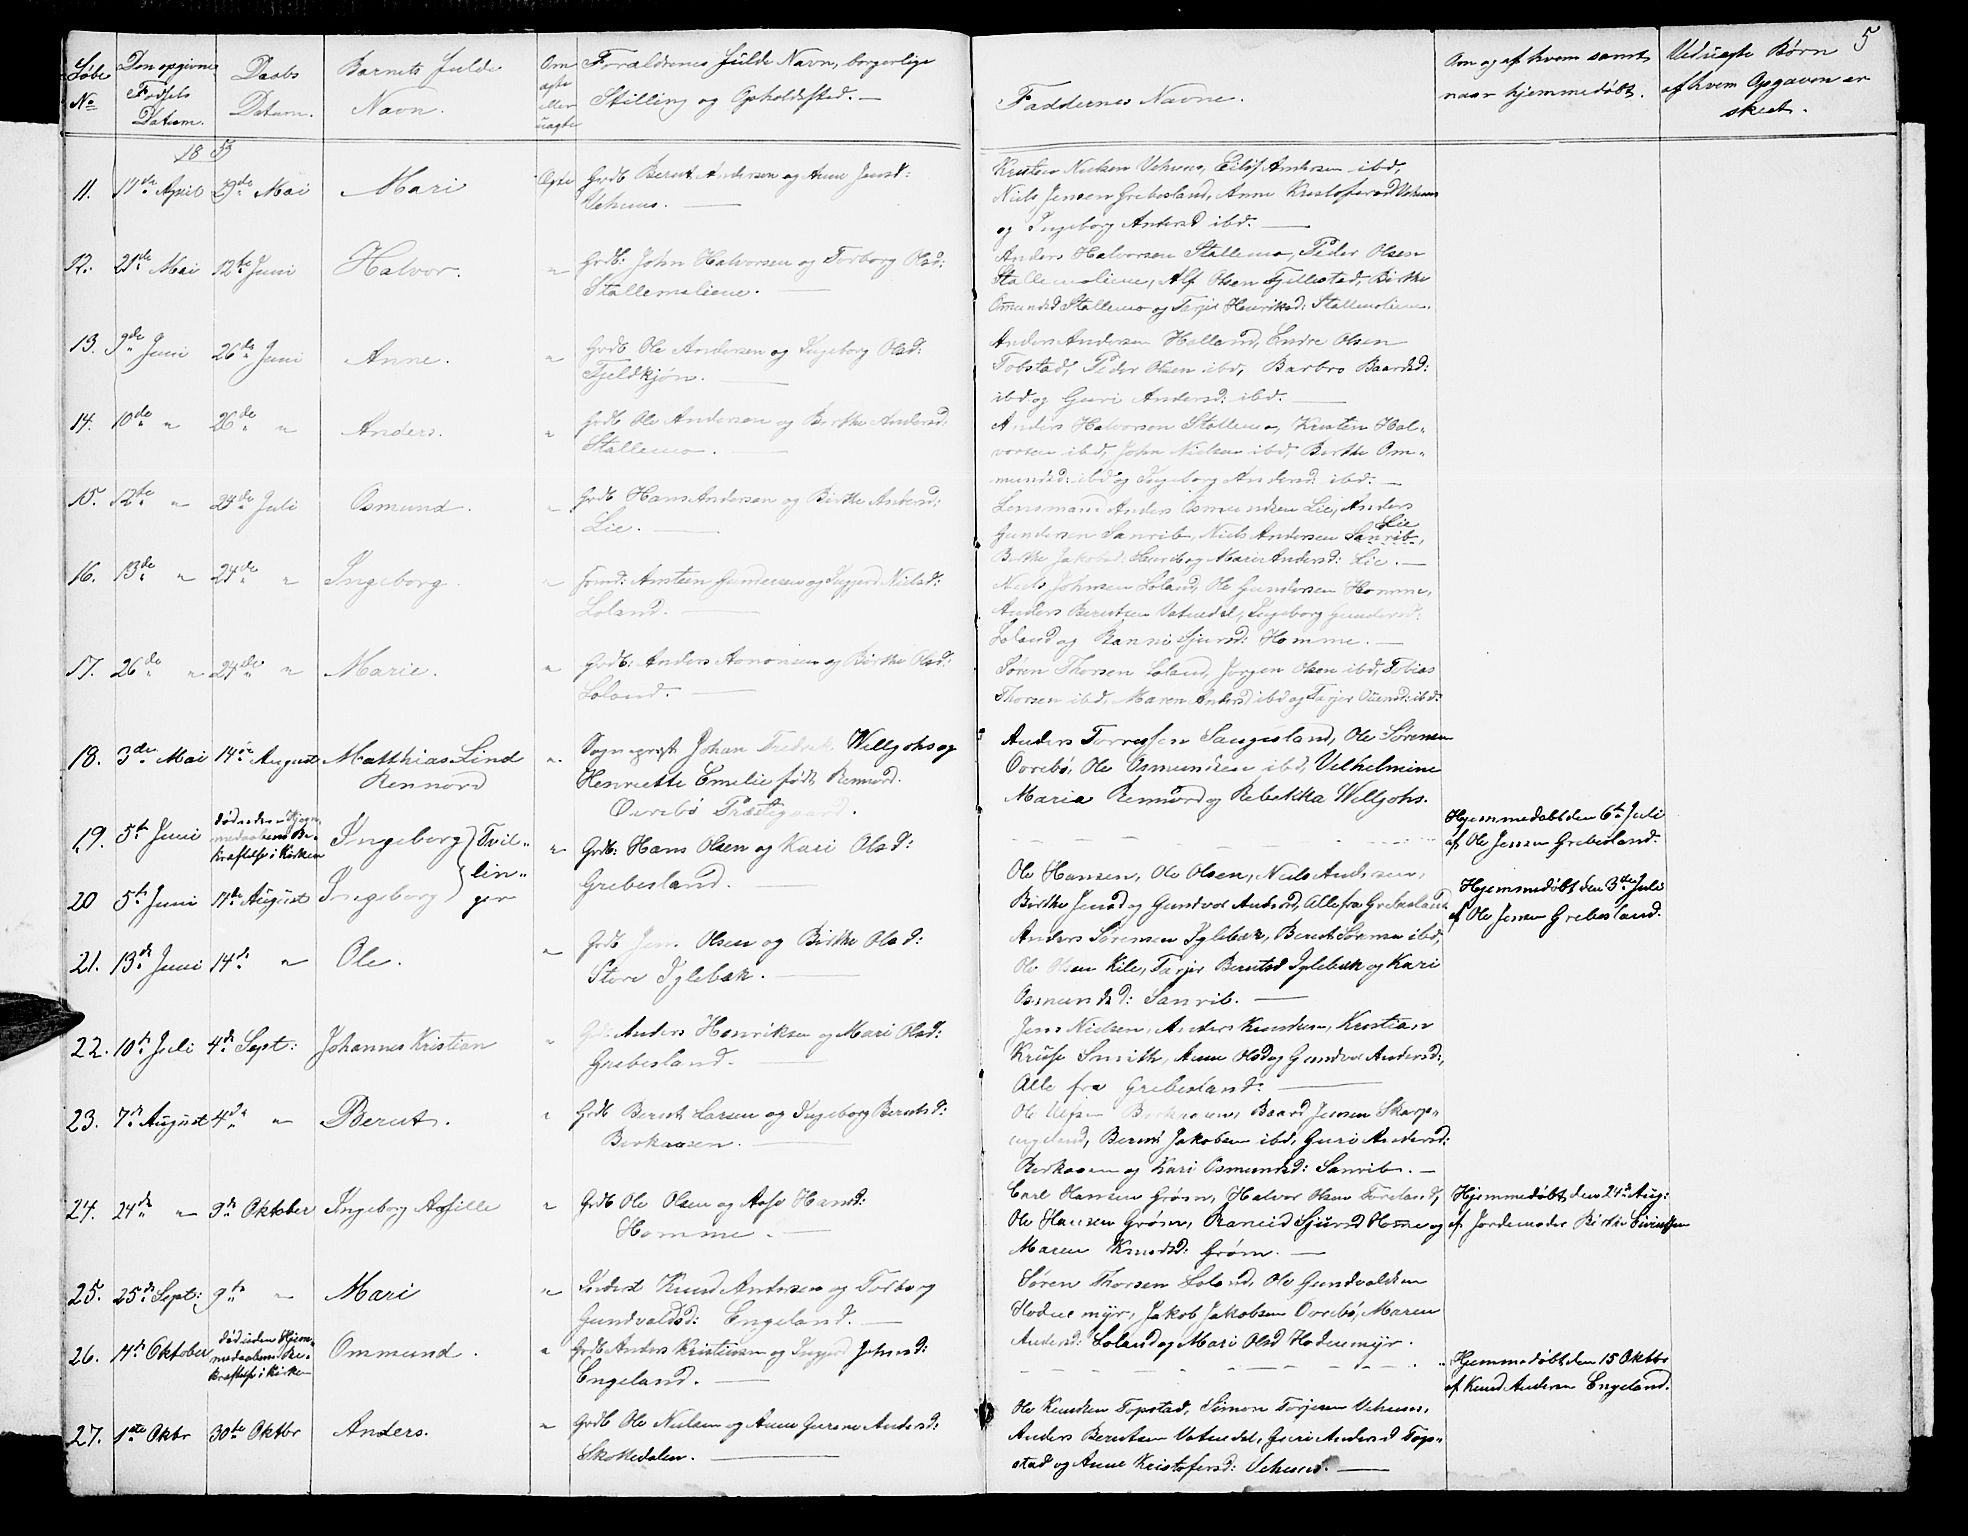 5
Løbe No
Den opgivne Fødsels Datum.
Daabs Datum.
Barnets fulde Navn.
Om ægte eller uægte
Forældrenes fulde Navn, borgerlige Stilling og Opholdssted. —
Faddernes Navne.
Om og af hvem samt naar hjemmedøbt.
Uduægte Børn af hvem Opgaven er skeet.
1853
11. 17de April 29de Mai Mari Ægte Grdb Berut Andersen og Anne Jensd: Vehuus. —
Kristen Nielsen Vehuus, Eilof Andersen ibd,
Niels Jensen Grebesland, Anne Kristofersd Vehuus
og Ingeborg Andersd ibd. —
12. 21de Mai 12te Juni Halvor. " Grdb: John Halvorsen og Torborg Olsd: Stallemoliene. —
Anders Halvorsen Stallemo, Peder Olsen
Stallemoliene, Alf Olsen Fjellestad, Birthe
Omundsd Stallemo og Tarjer Henriksd: Stallemoliene.
13. 9de Juni 26de Juni Anne. " Grdb Ole Andersen og Ingeborg Olsd: Fjeldkjøn. —
Anders Andersen Holland, Endre Olsen
Tobstad, Peder Olsen ibd, Barbro Baardsd:
ibd og Guri Andersd: ibd. —
14. 10de " 26de " Anders. " Grdb Ole Andersen og Birthe Andersd: Stallemo. —
Anders Halvorsen Stallemo, Kristen Hal-
vorsen ibd, John Nielsen ibd, Birthe Om-
mundsd: ibd og Ingeborg Andersd ibd. —
15. 12te " 24de Juli Osmund. " Grdb Hans Andersen og Birthe Andersd: Lie. —
Lensmand Anders Osmundsen Lie, Anders
Gundersen Sanrib, Niels Andersen Sanrib, Lie
Birthe Jakobsd: Sanrib og Marie Andersd: Lie. —
16. 13de " 24de " Ingeborg. " Arntsen Gundersen og Ingjerd Nielsd: Loland. —
Niels Johnsen Loland, Ole Gundersen Homme,
Anders Berutsen Vatnedal, Ingeborg Gundersd:
Loland og Ranni Sjursd: Homme. —
17. 26de " 24de " Marie. " Grdb: Anders Aanonsen og Birthe Olsd: Loland. —
Søren Thorsen Loland, Jørgen Olsen ibd, Tobias
Thorsen ibd, Maren Andersd ibd og Tarjer ibd:
18. 3de Mai 14de August Matthias Lind Rennord " Sognepræst Johan Fredrik Wellgohs og
Henriette Emilie født Rennord. Ovrebø Præstegaard.
Anders Torressen Saugesland, Ole Sørensen
Ovrebø, Ole Osmundsen ibd, Vilhelmine
Maria Rennord og Rebekka Wellgohs.
19. 5te Juni død uden Hjem-medaabens Be-kræftelse i Kirken Ingeborg } Tvil- " Grdb: Hans Olsen og Kari Olsd: Grebesland. —
Hjemmedøbt den 6te Juli
af Ole Jensen Grebesland.
20 5te Juni 14de August Ingeborg } lin-ger
Ole Hansen, Ole Olsen, Niels Andersen,
Birthe Jensd og Gundvor Andersd, Alle fra Grebesland
Hjemmedøbt den 3de Juli
af Ole Jensen Grebesland.
21. 13de Juni 14de " Ole. " Grdb Jens Olsen og Birthe Olsd: Store Iglebæk. —
Anders Sørensen Iglebæk, Berut Sørensen ibd,
Ole Olsen Kile, Tarjer Berutsd Iglebæk og Kari
Osmundsd: Sanrib. —
22. 10de Juli 4de Sept: Johannes Kristian " Anders Henriksen og Mari Olsd: Grebesland. —
Jens Nielsen, Anders Knudsen, Kristian
Kruse Smith, Anne Olsd og Gundvor Andersd:,
Alle fra Grebesland: —
23. 7de August 4de " Berut. " Grdb Berut Larsen og Ingeborg Berutsd: Berkaasen. —
Ole Berkaasen, Baard Jensen Skarp-
engeland, Berut Jakobsen ibd, Guri Andersd:
Berkaasen og Kari Osmundsd: Sanrib. —
24. 24de " 9de Oktober Ingeborg Aasille " Grdb Ole Olsen og Aase Hansd: Homme. —
Carl Hansen Grøsn, Halvor Olsen
Ole Hansen Grøsn, Ranveid Sjursd Homme og
Maren Knudsd: Grøsn. —
Hjemmedøbt den 24de Aug:
af Jordemoder Birthe
25. 25de Sept: 9de " Mari " Inderst Knud Andersen og Torborg Gundvaldsd: Engeland. —
Søren Thorsen Loland, Ole Gundvaldsen
Hodnemyr, Jakob Jakobsen Ovrebø, Maren
Andersd: Loland og Mari Olsd Hodnemyr.
26. 14de Oktober død uden Hjem-medaabens Be-kræftelse i Kirken Ommund. " Grdb Anders Kristiansen og Ingjerd Johnsd: Engeland. —
Hjemmedøbt den 15 Oktbr
af Knud Andersen Engeland.
27. 1ste Oktbr 30te Oktbr Anders. " Grdb Ole Nielsen og Anne Gurine Andersd: Skokedalen. —
Ole Knudsen Topstad, Simon Torjesen Vehuus,
Anders Berutsen Vatnedal, Guri Andersd Top-
stad og Anne Kristofersd: Vehuus. —